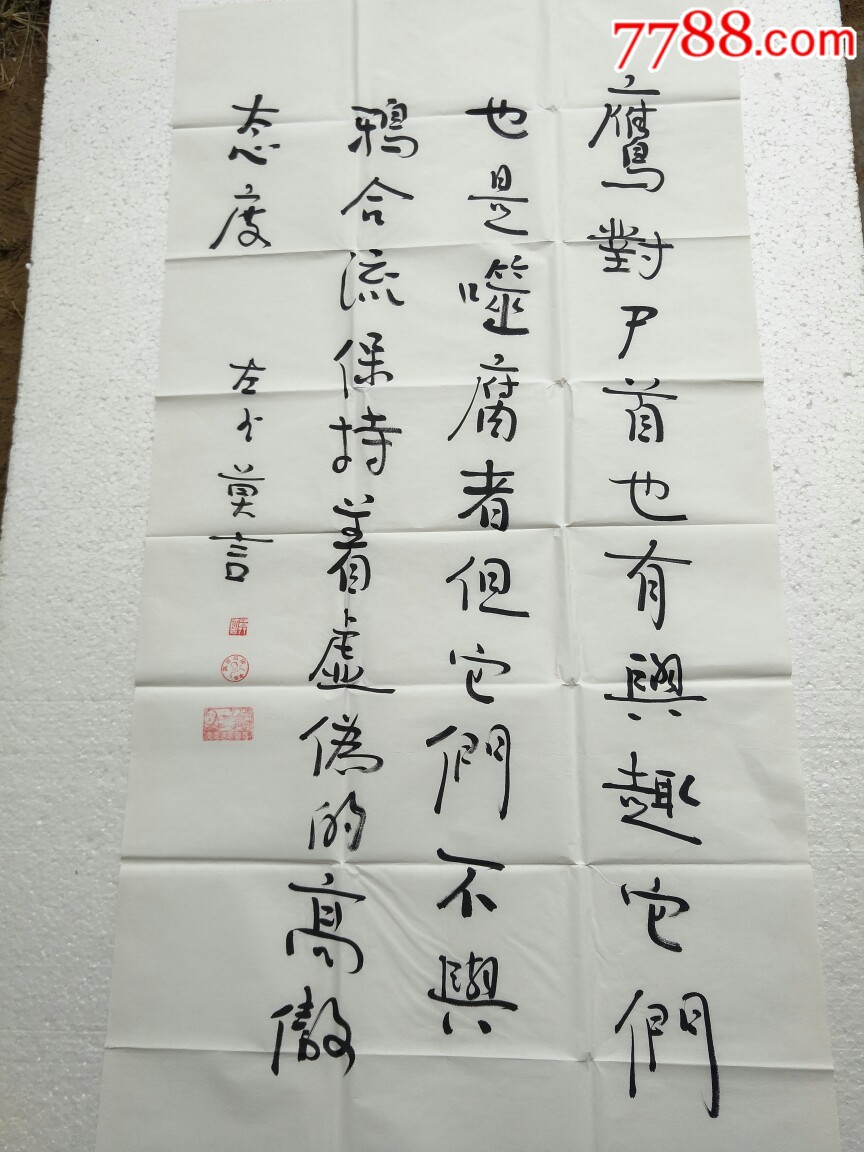 7788.com
鹰對尸首也有興趣它們
也是噬腐者但它們不與
鴉合流保持着虚偽的高傲
态度
左书莫言